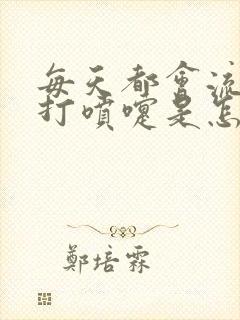 每天都會流
打噴嚏是怎
鄭培霖